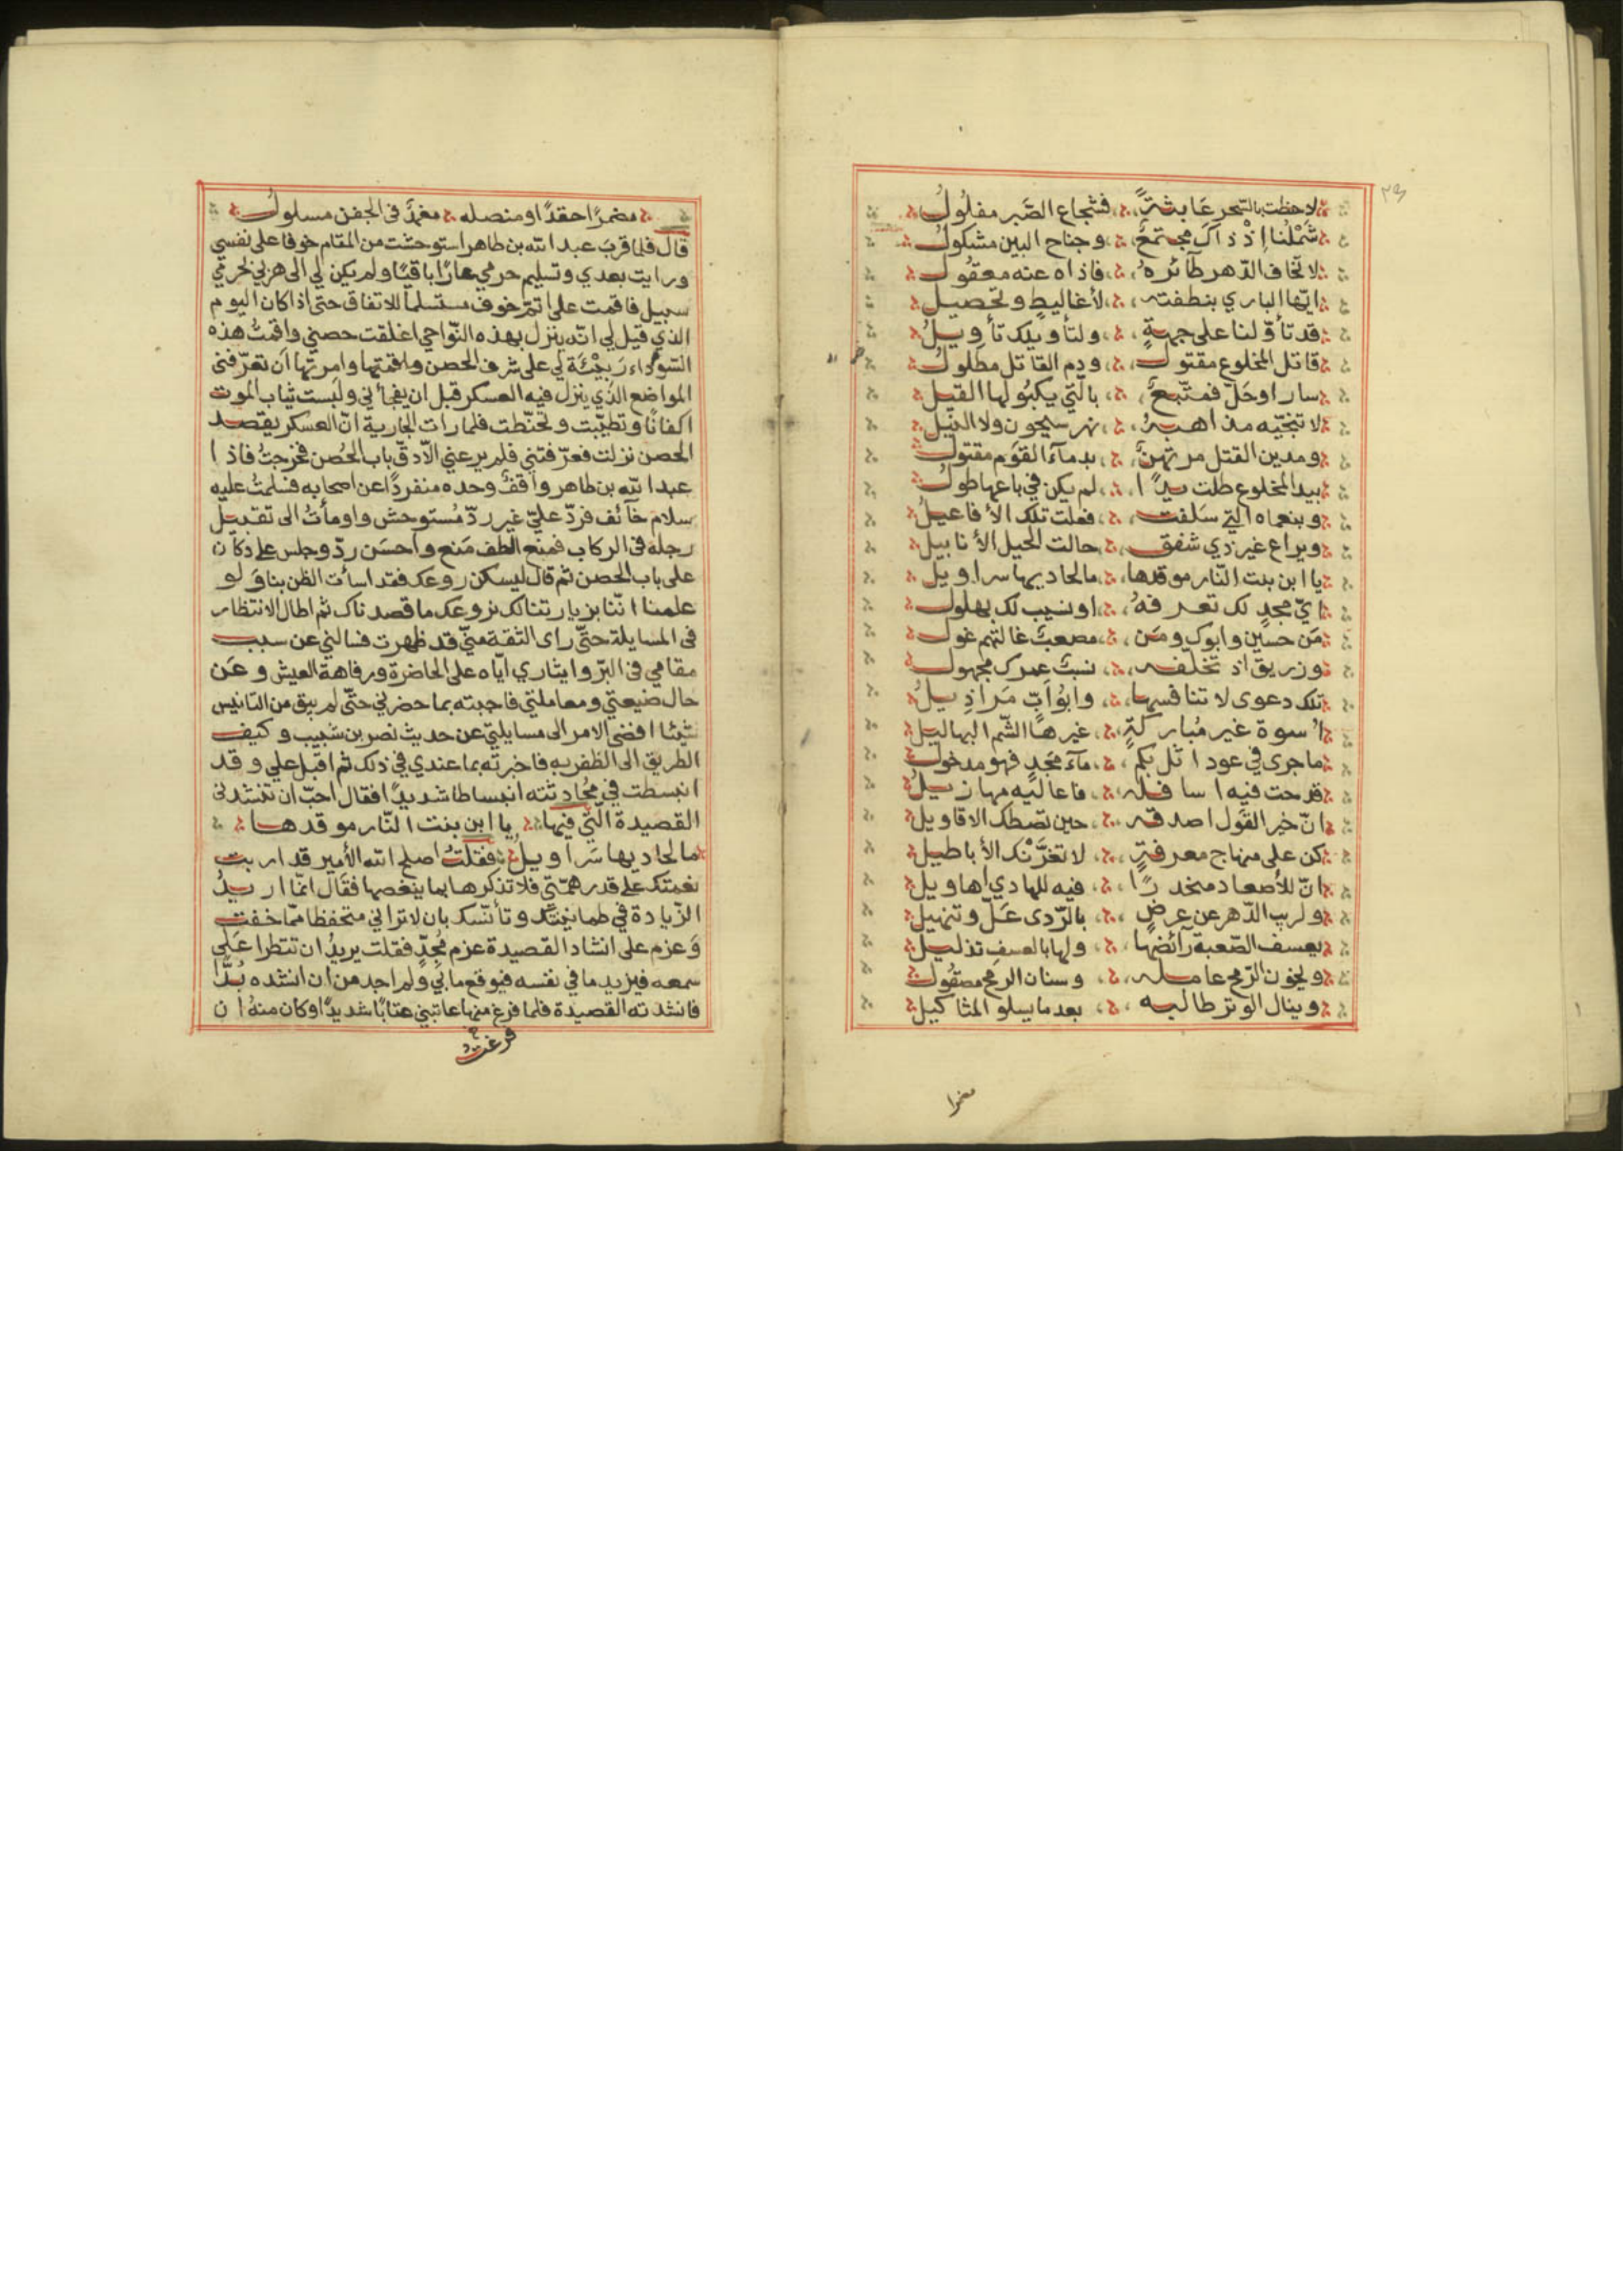 ٢٣
لاحظت بالسّحر عَابثةً فشجاع الصَّبر مفلُولُ
شَمْلُنا إذ ذاكَ مجتمعٌ وجناح البين مشكولُ
لا تخاف الدّهر طآئرهُ فاذاه عنه معقُولُ
ايّها البازي بنطفته لأغاليطٍ وتحصيل
قد تأوّلنا على جهةٍ ولنا ويلك تأويلُ
قاتل المخلوع مقتول ودم القاتل مطلولُ
سار اوحَلّ فمتّبعٌ بالّتي يكبُو لها الفيل
لا تنجّيه مذاهبهُ نهر سيحون ولا النيّل
ومدين القتل مرتهنٌ بدمآء القوَم مقتول
بيد المخلوع طلت يدًا لم يكن في باعها طول
وبنعماه الّتي سَلفت فعلت تلك الأفاعيلُ
وبراع غير ذي شفق حالت الخيل الأنابيل
يا ابن بنت النّار موقدها ما لحاديها سراويل
ايّ مجدٍ لك تعرفهُ او نسيب لك بهلول
مَن حسَين وابوك ومَن مصعبٌ غالتهم غول
وزريق اذ تخلّفه نسبٌ عمرك مجهول
تلك دعوى لا تنافسها وابُوابٌ مَراذِيلُ
اُسوة غير مُباركةٍ غيرها الشّم البهاليل
ما جرى في عود اثلكم مآء مجَدٍ فهو مدخول
قدحت فيه اسافله فاعاليه مهازيلُ
انّ خير القَول اصدقه حين تصطك الاقاويل
كن على منهاج معرفةٍ لا تغرَّنْك الأباطيل
انّ للأصعاد منحدرًا فيه للهادي اهاويل
ولريب الدّهر عن عرضٍ بالرّدى عَلّ وتنهيل
يعسف الصّعبة رآئضها ولها بالعسف تذليل
ويخون الرّمح عامله وسنان الرمح مصقُول
وينال الوتر طالبه بعد ما يسلو المثاكيل
مضمرا
مضمرًا حقدًا ومنصله مغمدٌ في الجفن مسلولُ
قال فلما قربَ عبد الله بن طاهر استوحشت من المقام خوفا على نفسي
ورايت بعدي وتسليم حرمي عارًا باقيًا ولم يكن لي الى هربي بحرمي
سبيل فاقمت على اتمّ خوف مستسلماً للاتفاق حتى اذا كان اليوم
الذي قيل لي انّه ينزل بهذه النّواحي اغلقت حصني واقمتُ هذه
السّودَاء رَبيْئَة لي على شرف الحصن واقمتها وامرتها ان تعرّفني
المواضع الذي ينزل فيه العسكر قبل ان يفجأني ولبست ثياب الموت
اكفانًا وتطيّبت وتحنّطت فلما رات الجارية انّ العسكر يقصد
الحصن نزلت فعرّفتني فلم يرعني الّا دقّ باب الحُصن فخرجتُ فاذا
عبد الله بن طاهر واقفٌ وحده منفردًا عن اصحابه فسلمتُ عليه
سلام خآئف فردّ عليّ غير ردّ مُستوحش واومأتُ الى تقبيل
رجله في الركاب فمنع الطف مَنع واحسَن ردّ وجلس على دكان
على باب الحصن ثم قال ليسكن روعك فقد اسأت الظن بنا وَلو
علمنا انّنا بزيارتنا لك نروعك ما قصدناك ثم اطال الانتظار
في المسايلة حتّى راى الثقة منّي قد ظهرت فسالني عن سبب
مقامي في البرّ وايثاري ايّاه على الحاضرة ورفاهة العيش وعَن
حال ضيعتي ومعاملتي فاجبته بما حضرني حتّى لم يبق من التانيس
شيئا افضى الامر الى مسايلتي عن حديث نصر بن شبيب وكيف
الطريق الى الظفر به فاخبرته بما عندي في ذلك ثم اقبل علي وقد
انبسطت في مُحادثته انبساطا شديدًا فقال احبّ ان تنشدني
القصيدة الّتي فيها يا ابن بنت النّار موقدها
ما لحاديها سَراويلُ فقلتُ اصلح الله الأمير قد اربت
نعمتك على قدر همّتي فلا تذكرها بما ينغصها فقال انمّا اريدُ
الزّيادة في طمانينتك وتأنّسك بان لا تراني متحفظا ممّا خفت
وَعزم على انشاد القصيدة عزم مُجِدّ فقلت يريدُ ان تتطرا عَلى
سمعه فيزيد ما في نفسه فيوقع ما بي ولم اجد من ان انشده بُدًّا
فانشدته القصيدة فلما فرغ منها عاتبني عتابًا شديدًا وكان منهُ ان